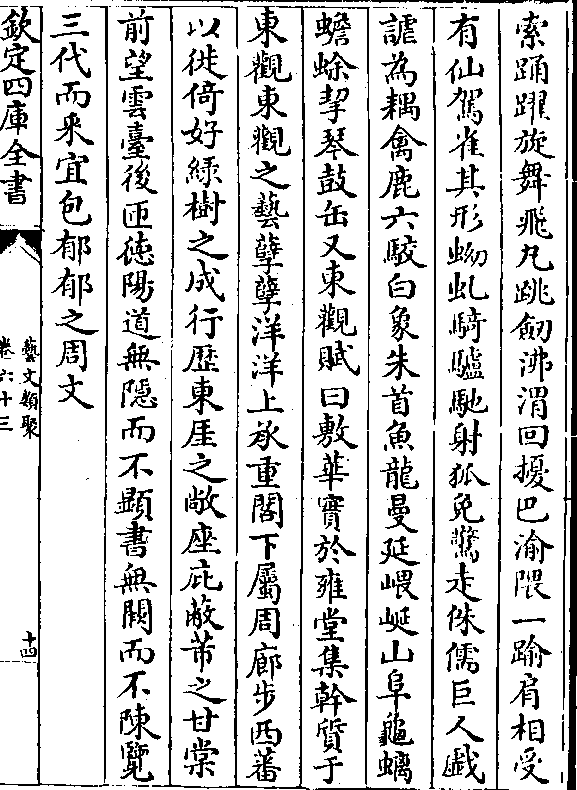 索踊躍旋舞飛丸跳劒沸渭回擾巴渝隈一踰肩相受
有仙駕雀其形蚴虬騎驢馳射狐兔驚走侏儒巨人戲
謔為耦禽鹿六駮白象朱首魚龍曼延㟪㟞山阜龜螭
蟾蜍挈琴鼓缶又東觀賦曰敷華實於雍堂集幹質于
東觀東觀之藝孽孽洋洋上承重閣下屬周廊步西蕃
以徙倚好綠樹之成行歷東厓之敞座庇蔽芾之甘棠
前望雲臺後匝徳陽道無隠而不顯書無闕而不陳覽
三代而采宜包郁郁之周文
欽定四庫全書
藝文類聚
卷六十三
十四